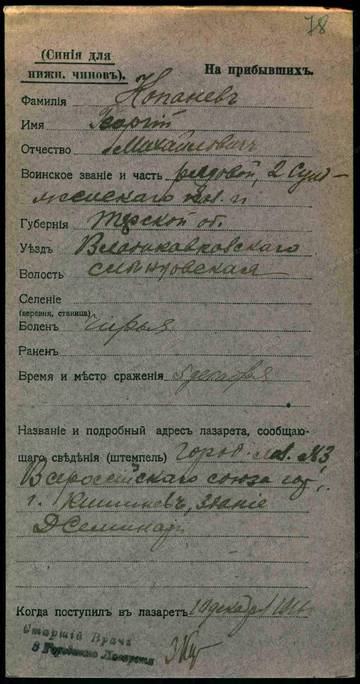 78
(Синія для
нижн. чиновъ).
На прибывшихъ.
Фамилія Копаневъ
Имя Георгій
Отчество Михайловичъ
Воинское званіе и часть рядовой, 2 Сунд-
женскаго каз. п
Губернія Терской об.
Уѣздъ Владикавказскаго
Волость
Селеніе
(деревня, станица)
Боленъ чирья
Раненъ
Время и мѣсто сраженія 5 декабря
Названіе и подробный адресъ лазарета, сообщаю-
щаго свѣдѣнія (штемпель) Город. лаз. №3
Всероссійскаго союза гор.
г. Кишиневъ, зданіе
Д Семинар
Когда поступилъ въ лазаретъ 10 декабря 1916
Старшій Врачъ
3 Городского Лазарета